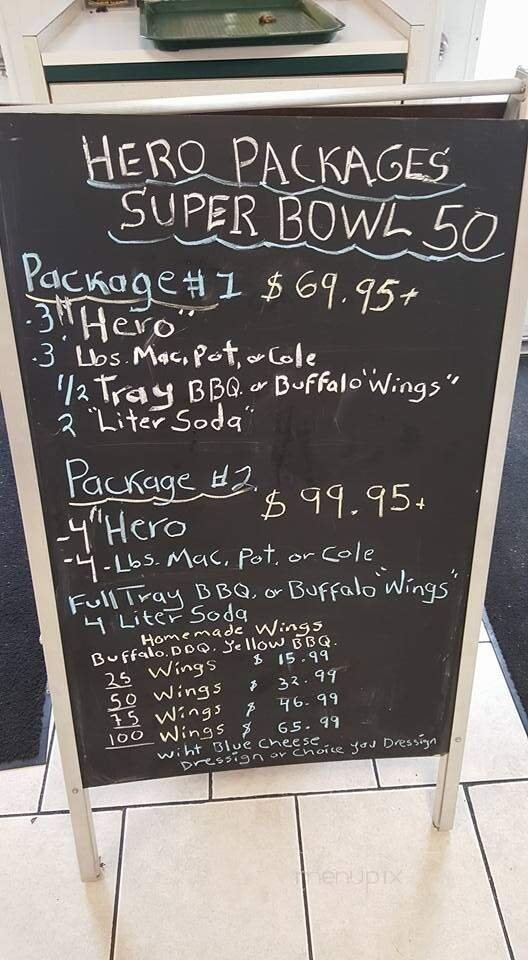 HERO PACKAGES
SUPER BOWL 50
Package #1 $69.95+
-3" Hero"
-3 Lbs. Mac, Pot, or Cole
1/2 Tray BBQ. or Buffalo "Wings"
2 "Liter Soda"
Package #2 $99.95+
-4" Hero
-4-Lbs. Mac, Pot, or Cole
Full Tray BBQ. or Buffalo "Wings"
4 Liter Soda
Homemade Wings
Buffalo. BBQ. Yellow BBQ.
25 Wings $ 15.99
50 Wings $ 32.99
75 Wings $ 46.99
100 Wings $ 65.99
wiht Blue Cheese
Dressign or Choice you Dressign
menupix